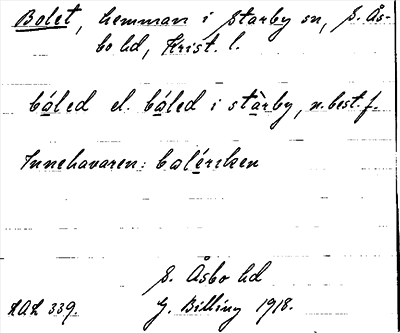 Bolet, hemman i Starby sn, S. Ås-
bo hd, Krist. l.
båled el. båled i stàrby, n. best. f.
Innehavaren: balérsken
S. Åsbo hd
LAL 339. G. Billing 1918.